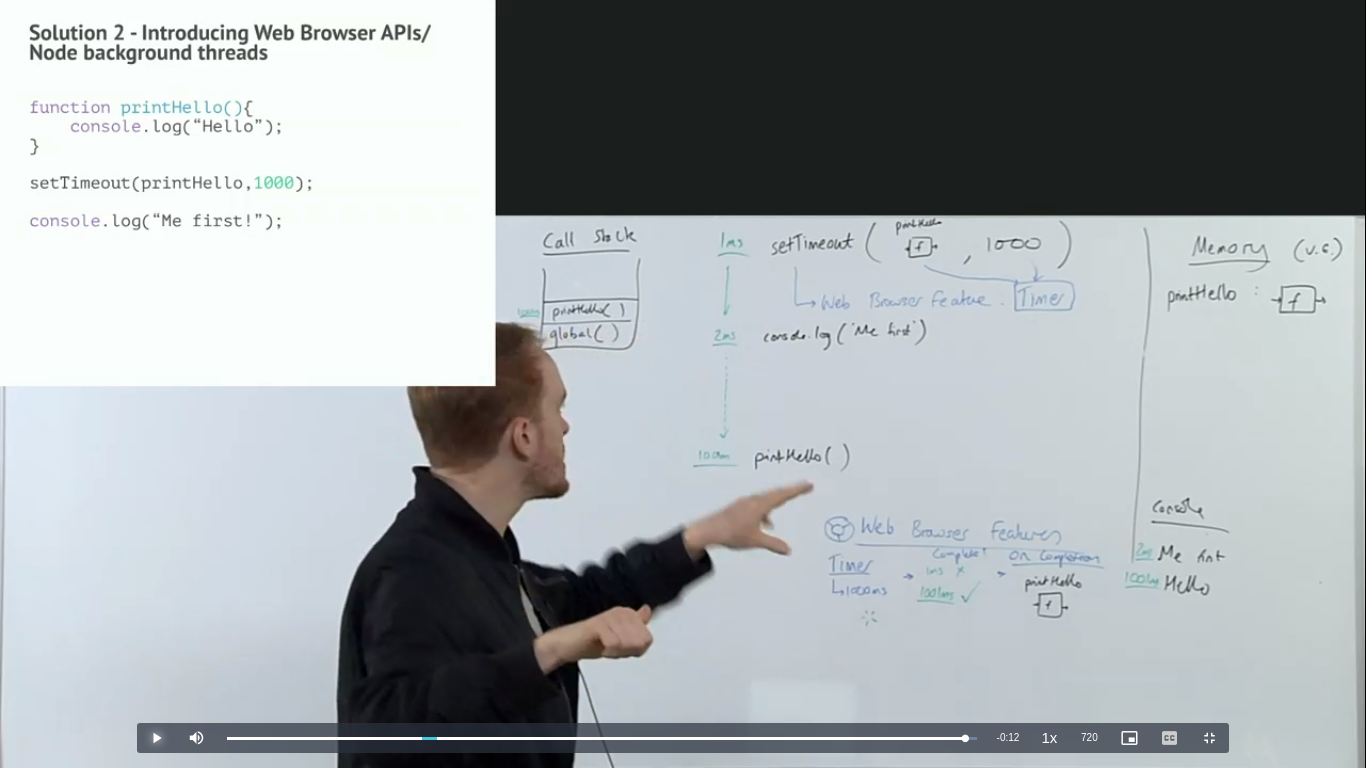 Solution 2 - Introducing Web Browser APIs/
Node background threads
function printHello(){
console.log(“Hello”);
}
setTimeout(printHello,1000);
console.log(“Me first!”);
Call Stack
printHello( )
global( )
1ms setTimeout ( printHello f , 1000 )
Web Browser Feature : Timer
2ms console.log ( 'Me first' )
1001ms printHello( )
Memory (V.E.)
printHello : f
Web Browser Features
Timer
1000ms
Complete?
1ms x
1001ms ✓
On Completion
printHello
f
Console
2ms Me first
1001ms Hello
-0:12
1x
720
CC